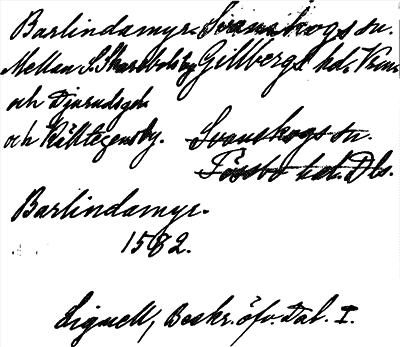 Barlindamyr. Svanskogs sn.
Mellan S. Skarbolsby Gillbergs hd. Vrml.
och Djurudsgd.
och Rålltegensby. Svanskogs sn.
Tössbo hd. Dls.
Barlindamyr.
1582.
Lignell, Beskr. öfv. Dal. I.